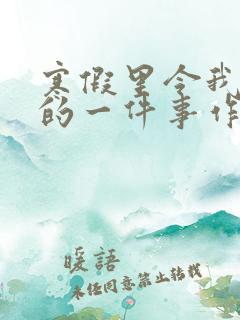 寒假里令我
的一件事作
暖語
未經同意禁止轉載